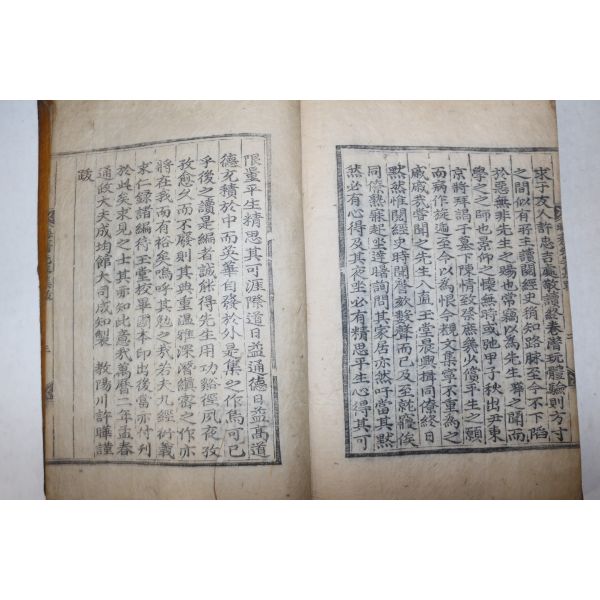 求于友人許忠吉處敬讀終卷潛玩體驗則方寸
之間似有所主讀閱經史稍知路脉至今不下陷
於惡無非先生之賜也常竊以爲先生聾之聞而
學之之師也景仰之懷無時或弛甲子秋出丑東
京將拜謁于墓下陳情致祭庶幾少償平生之願
而病作旋還至今以爲恨今覩文集寧不重爲之
戚戚我嘗聞之先生入直玉堂晨興揖同僚終日
默然惟閱經史時聞謦欬聲而已及至就寢俟
同僚熟寐起坐達曙詢問其家居亦然可當其默
然必有心得及其夜坐必有精思平生心得其可
限量平生精思其可涯際道日益通德日益高道
德充積於中而英華自發於外是集之作烏可已
乎後之讀是編者誠能得先生用功谿徑夙夜孜
孜愈久而不廢則其典重溫雅深潛縝密之作亦
將在我而有裕矣嗚呼其勉之哉若夫九經衍義
求仁錄諸編待玉堂校畢國本印出後當亦付列
於此矣求見之士其亦知此意哉萬曆二年孟春
通政大夫成均館大司成知製 教陽川許曄謹
跋